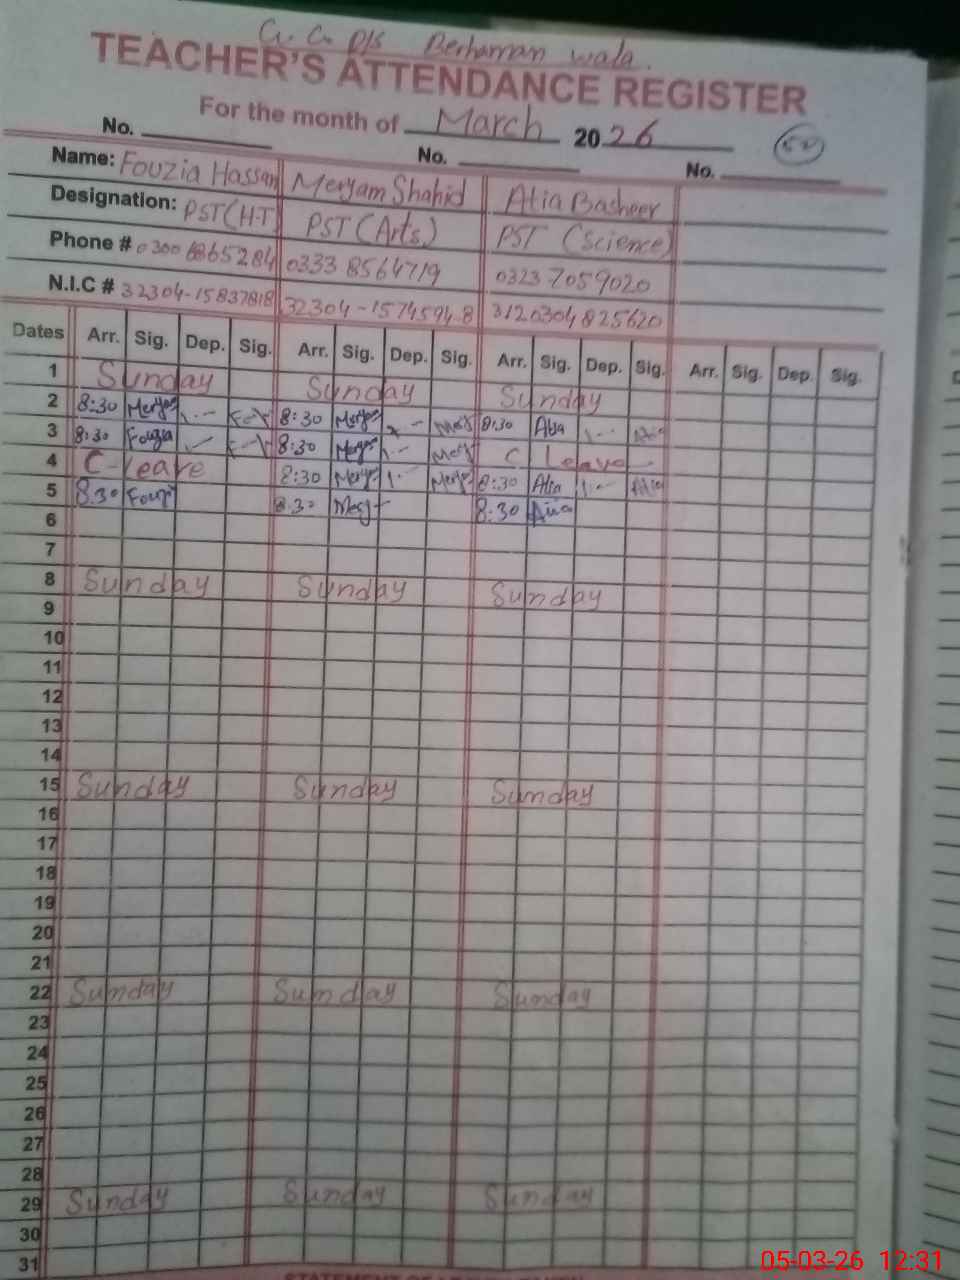 G. G. P/S Berhaman wala.
TEACHER'S ATTENDANCE REGISTER
For the month of March 2026
No. No. No.
Name: Fouzia Hassan Meryam Shahid Atia Basheer
Designation: PST(H.T) PST (Arts) PST (Science)
Phone # 0300 6865284 0333 8564719 0323 7059020
N.I.C # 32304-15837818 32304-1574594-8 3120304825620
Dates Arr. Sig. Dep. Sig. Arr. Sig. Dep. Sig. Arr. Sig. Dep. Sig. Arr. Sig. Dep. Sig.
1 Sunday Sunday Sunday
2 8:30 Meryam 1.-- 8:30 Meryam Mery 8:30 Atia 1.-- Atia
3 8:30 Fouzia 8:30 Meryam 1.-- Mery C Leave
4 C-leave 8:30 Merya 1.-- Merya 8:30 Atia 1.-- Atia
5 8:30 Fouzi 8:30 Mery 8:30 Atia
6
7
8 Sunday Sunday Sunday
9
10
11
12
13
14
15 Sunday Sunday Sunday
16
17
18
19
20
21
22 Sunday Sunday Sunday
23
24
25
26
27
28
29 Sunday Sunday Sunday
30
31
05-03-26 12:31